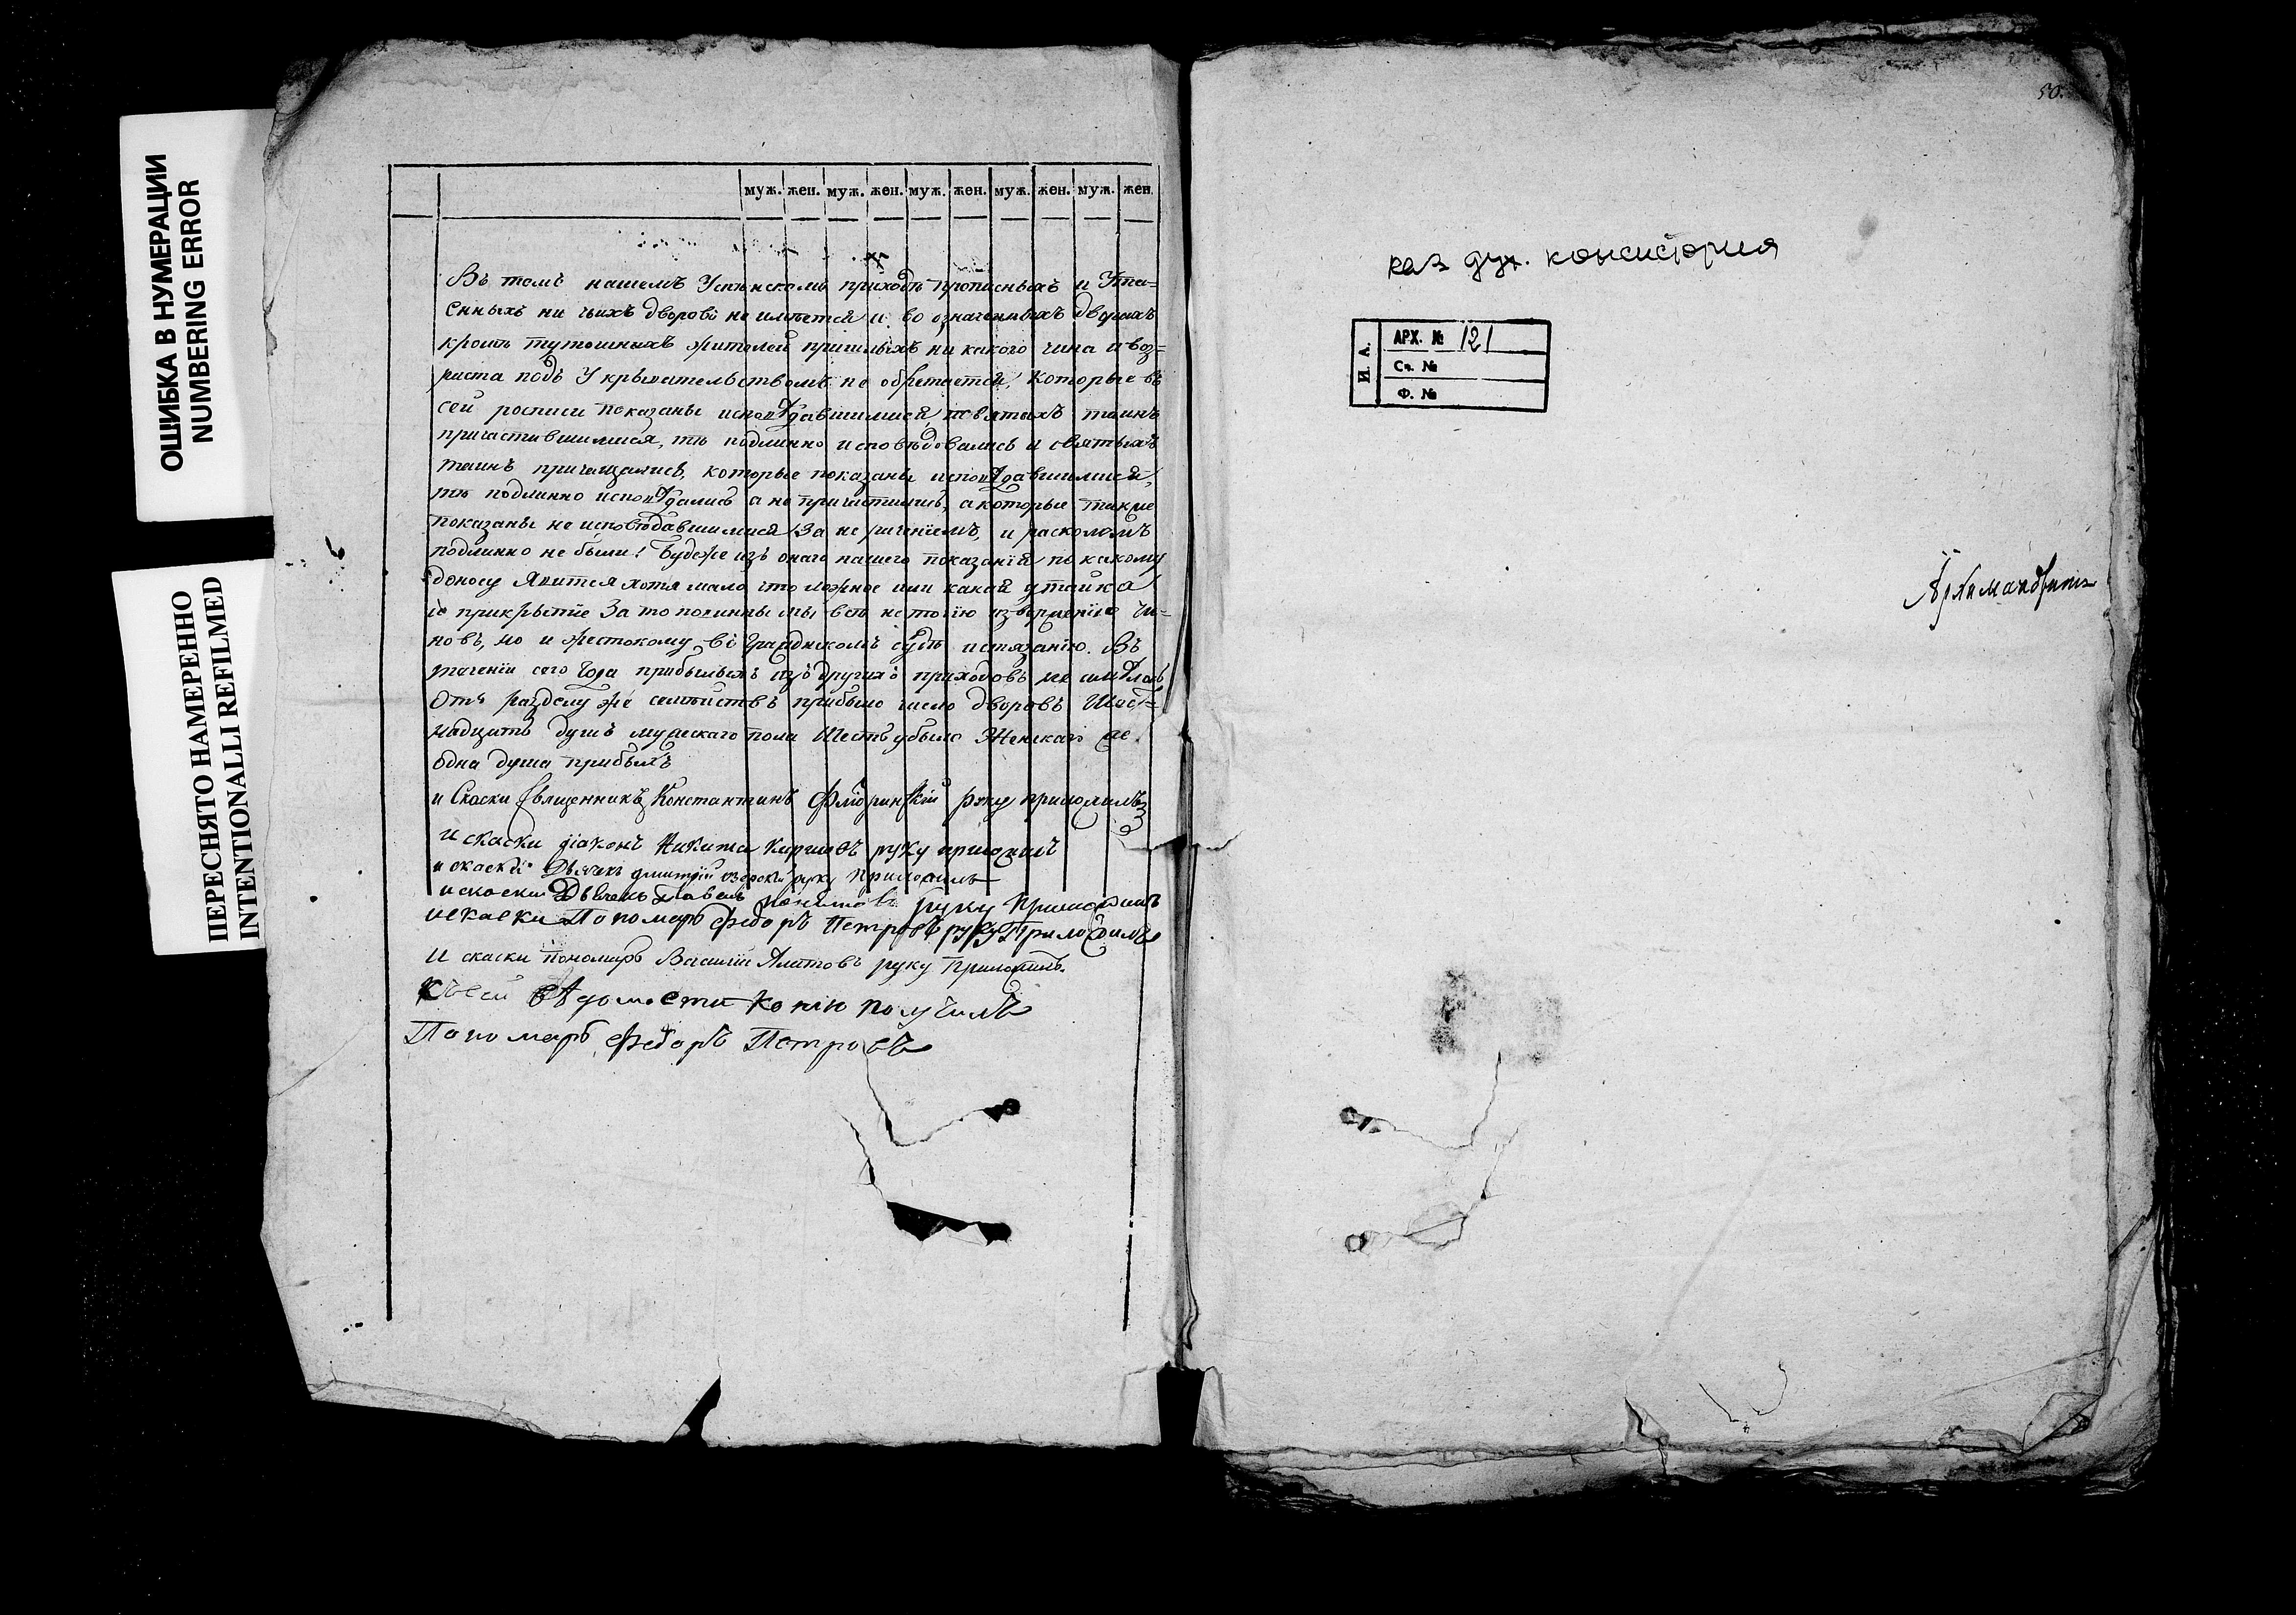 ОШИБКА В НУМЕРАЦИИ
NUMBERING ERROR
ПЕРЕСНЯТО НАМЕРЕННО
INTENTIONALLI REFILMED
муж. жен. муж. жен. муж. жен. муж. жен. муж. жен.
Въ томъ нашемъ приходѣ прописныхъ и Ута=
енныхъ ни чьихъ дворовъ не имѣется и во означенныхъ дворахъ
кромѣ тутошныхъ жителей пришлыхъ ни какого чина и воз=
раста подъ Укрывательствомъ не обретается, Которые въ
сей росписи показаны исповѣдавшимися, и святыхъ таинъ
причастившимися, тѣ подлинно исповѣдовались и святыхъ
таинъ причащались, которые показаны исповѣдавшимися,
тѣ подлинно исповѣдались а не причастились, а которые также
показаны не исповѣдавшимися За не раченіемъ, и расколомъ
подлинно не были! Будеже изъ онаго нашего показанія по какому
доносу Явится хотя мало что ложное или какая утайка
и прикрытие За то повинны мы всѣ не токмо изверженію чи=
новъ, но и жестокому въ Градскомъ судѣ истязанію. Въ
теченіи сего Года прибылыхъ изъ другихъ приходовъ не имѣлось
Отъ разделу же семействъ прибыло число дворовъ Шест=
надцать душъ мужескаго пола Шесть убыло Женскаго же
одна душа прибыла
и Скаски Священникъ Константинъ руку приложилъ
И скаски діаконъ Никита Кириловъ руку приложилъ
и скаски Дьячекъ Дмитрій руку Приложилъ
и скаски Дьячекъ Павелъ руку Приложилъ
и скаски Пономарь Федоръ Петровъ руку Приложилъ
И скаски пономарь Василій руку Приложилъ.
Къ сей вѣдомости копію получилъ
Пономарь Федоръ Петровъ
50.
каз дух. консистория
И. А.
АРХ. № 121
Св. №
Ф. №
Архимандритъ